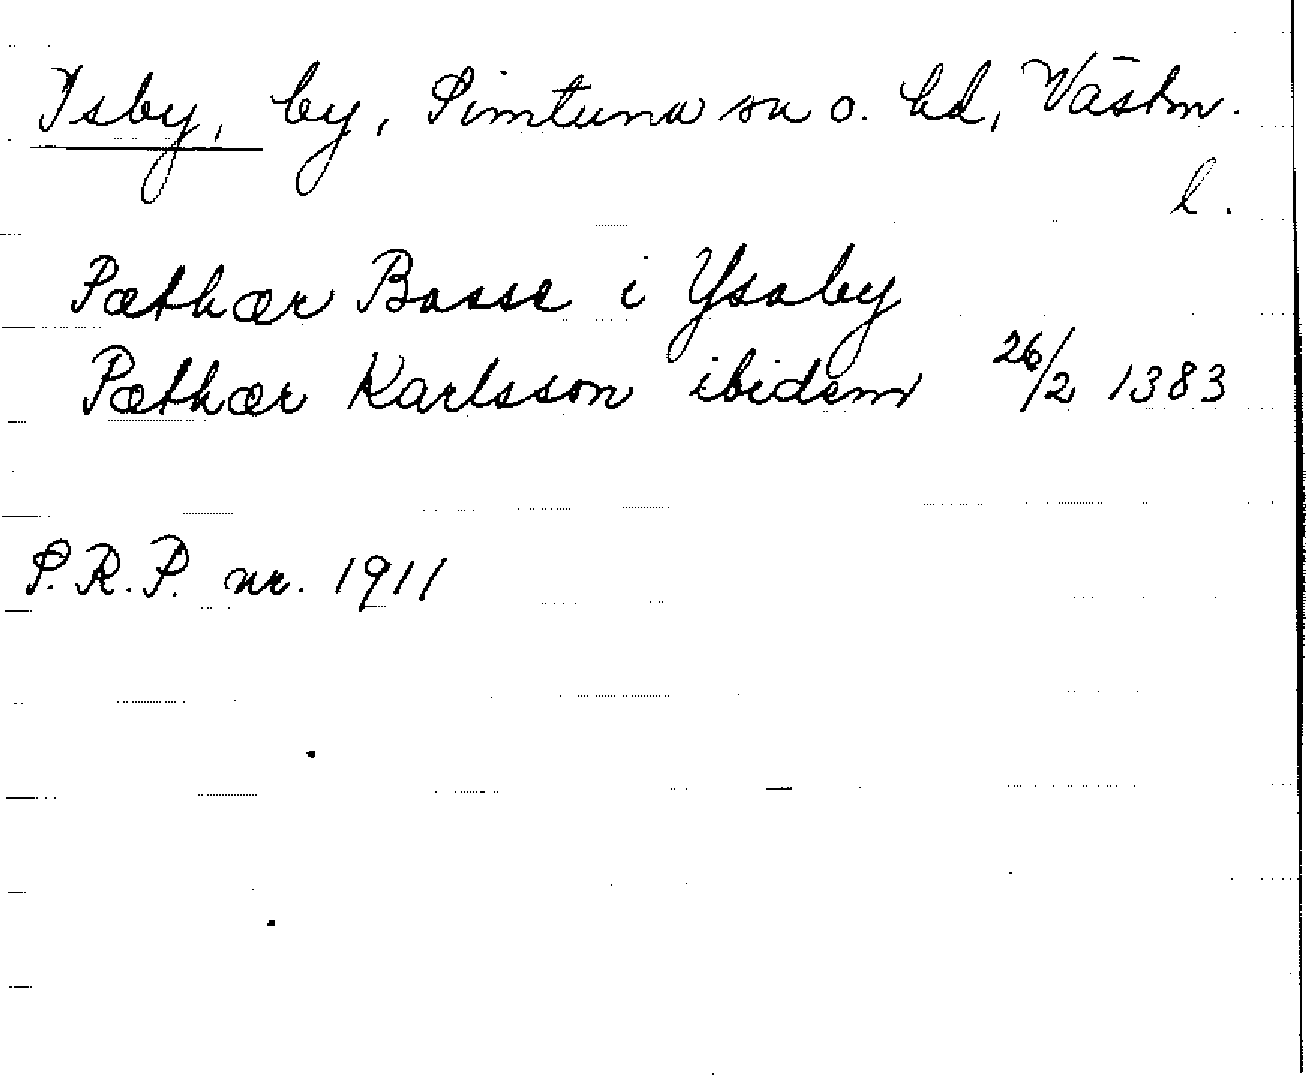 Isby, by, Simtuna sn o. hd, Västm.
l.
Pæthær Basse i Ysaby
Pæthær Karlsson ibidem 26/2 1383
S.R.P. nr. 1911